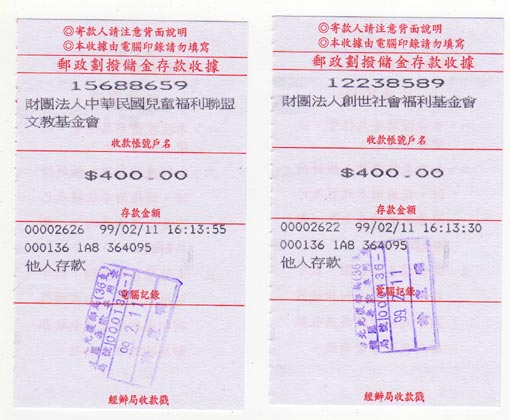 ◎寄款人請注意背面說明
◎本收據由電腦印錄請勿填寫
郵政劃撥儲金存款收據
15688659
財團法人中華民國兒童福利聯盟
文教基金會
收款帳號戶名
$400.00
存款金額
00002626 99/02/11 16:13:55
000136 1A8 364095
他人存款
電腦記錄
99.2.11
經辦局收款戳
◎寄款人請注意背面說明
◎本收據由電腦印錄請勿填寫
郵政劃撥儲金存款收據
12238589
財團法人創世社會福利基金會
收款帳號戶名
$400.00
存款金額
00002622 99/02/11 16:13:30
000136 1A8 364095
他人存款
電腦記錄
99.2.11
經辦局收款戳